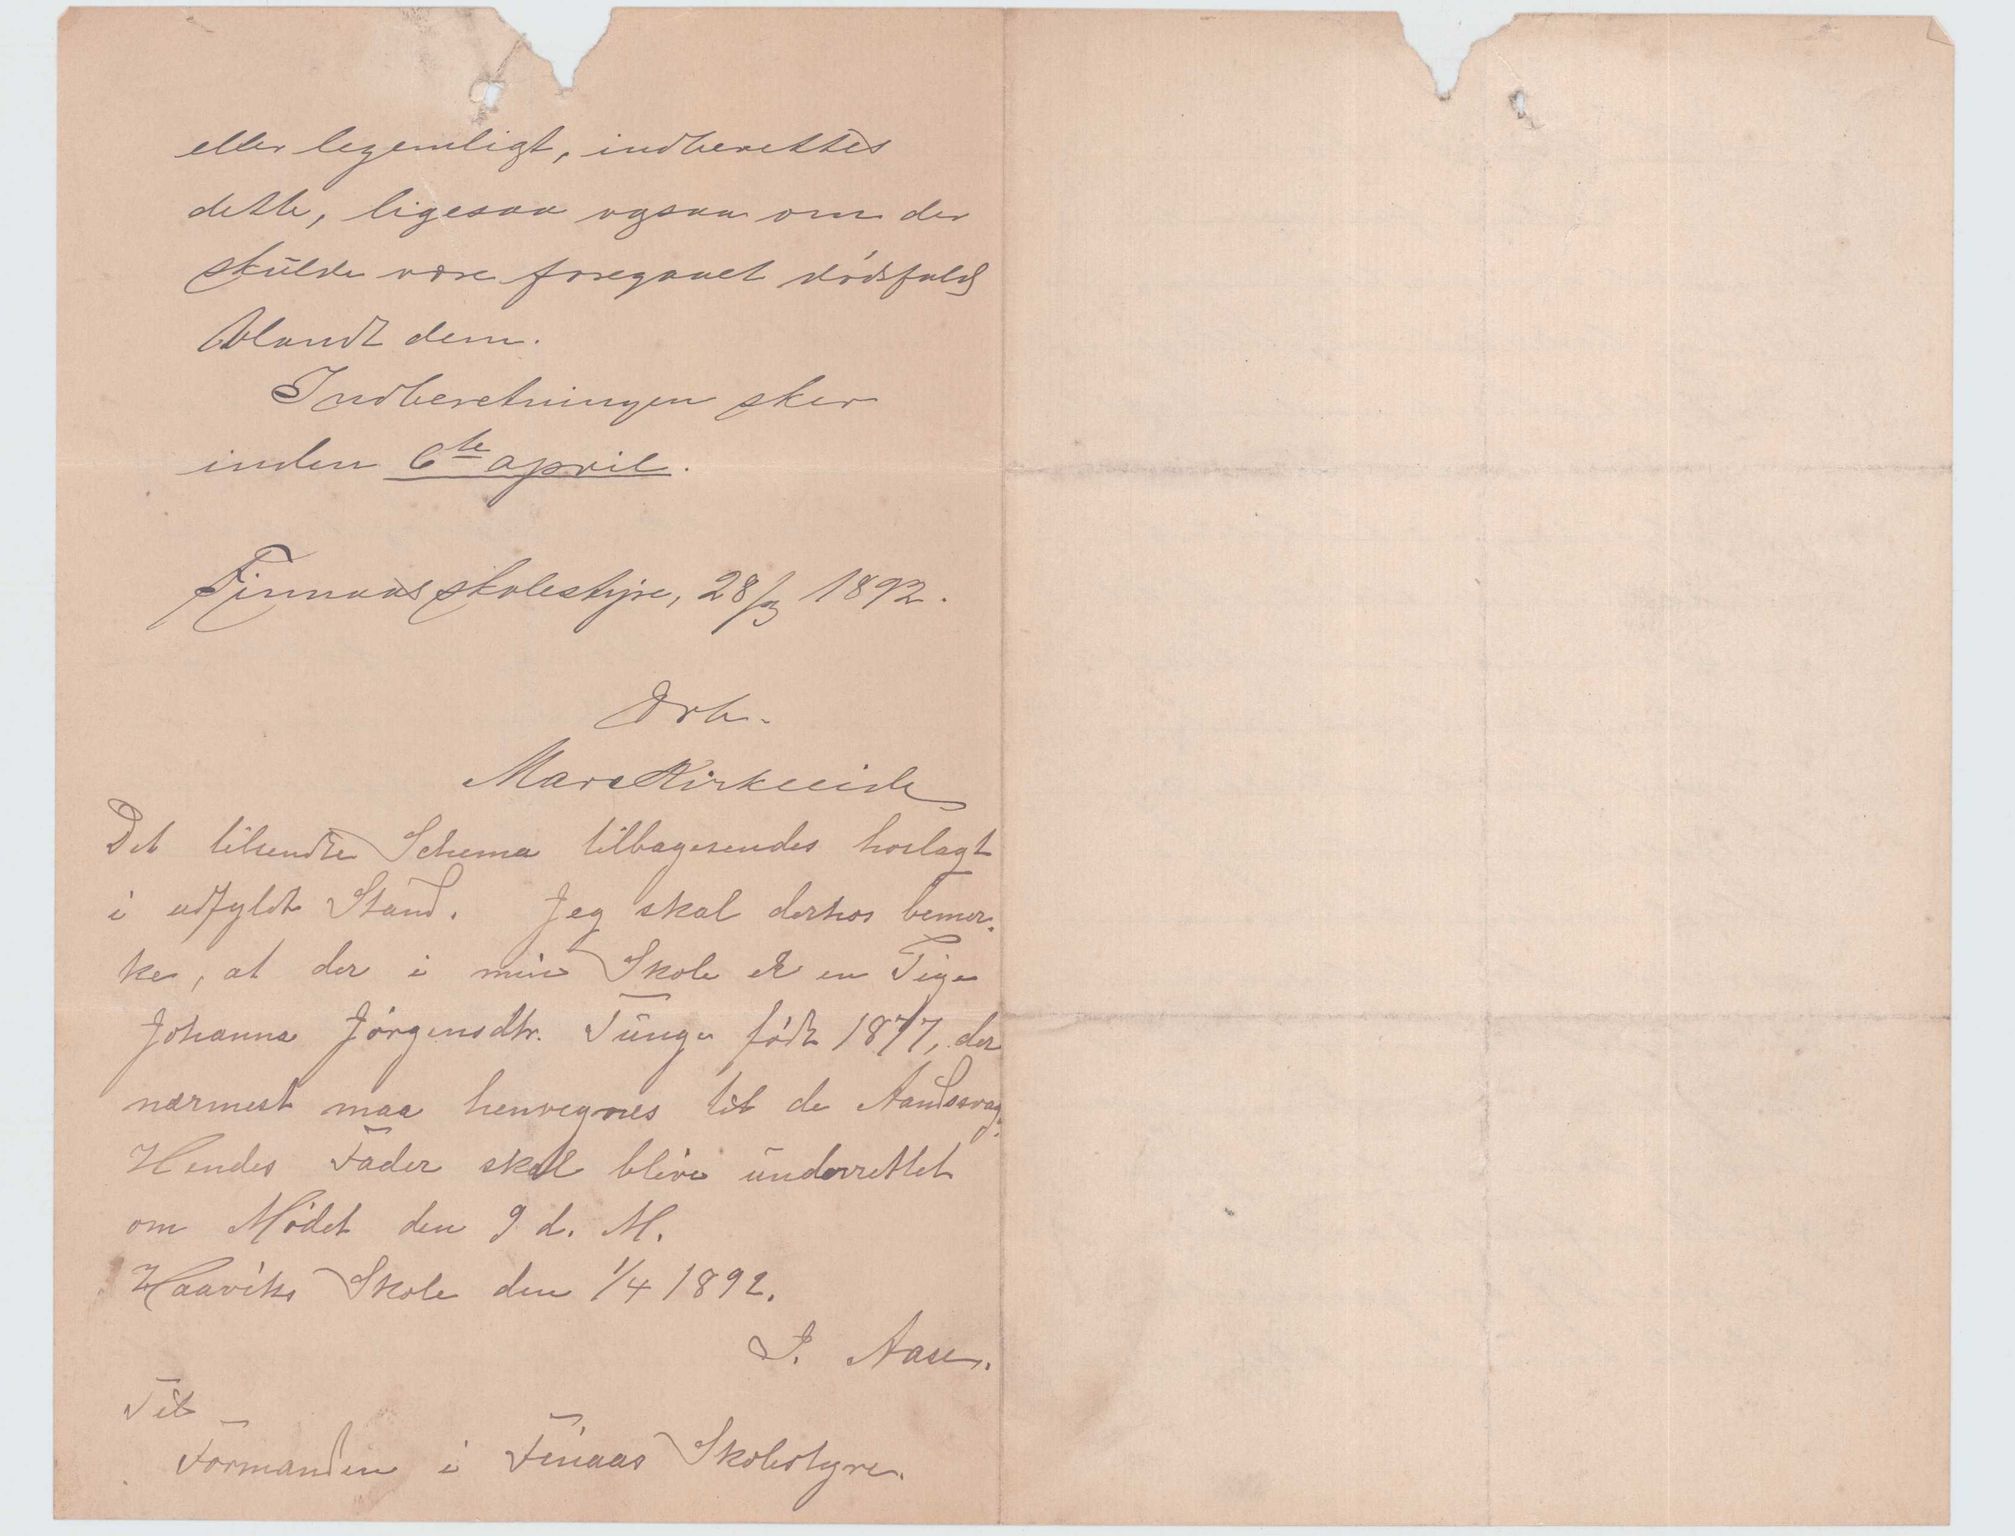 eller legemligt, indberettes
dette, ligesaa ogsaa om der
skulde være foregaaet dødsfald
blandt dem.
Indberetningen sker
inden 6te april.
Finnaas skolestyre, 28/3 1892.
Mars Kirkeeide
Det tilsendte Schema tilbagesendes hoslagt
i udfyldt Stand. Jeg skal derhos bemær-
ke, at der i min Skole er en Pige
Johanna Jørgensdtr. Tunge født 1877, der
nærmest maa henregnes til de Aandssvage.
Hendes Fader skal blive underrettet
om Mødet den 9 d. M.
Haaviks Skole den 1/4 1892.
J. Aase.
Til
Formanden i Finaas Skolestyre.